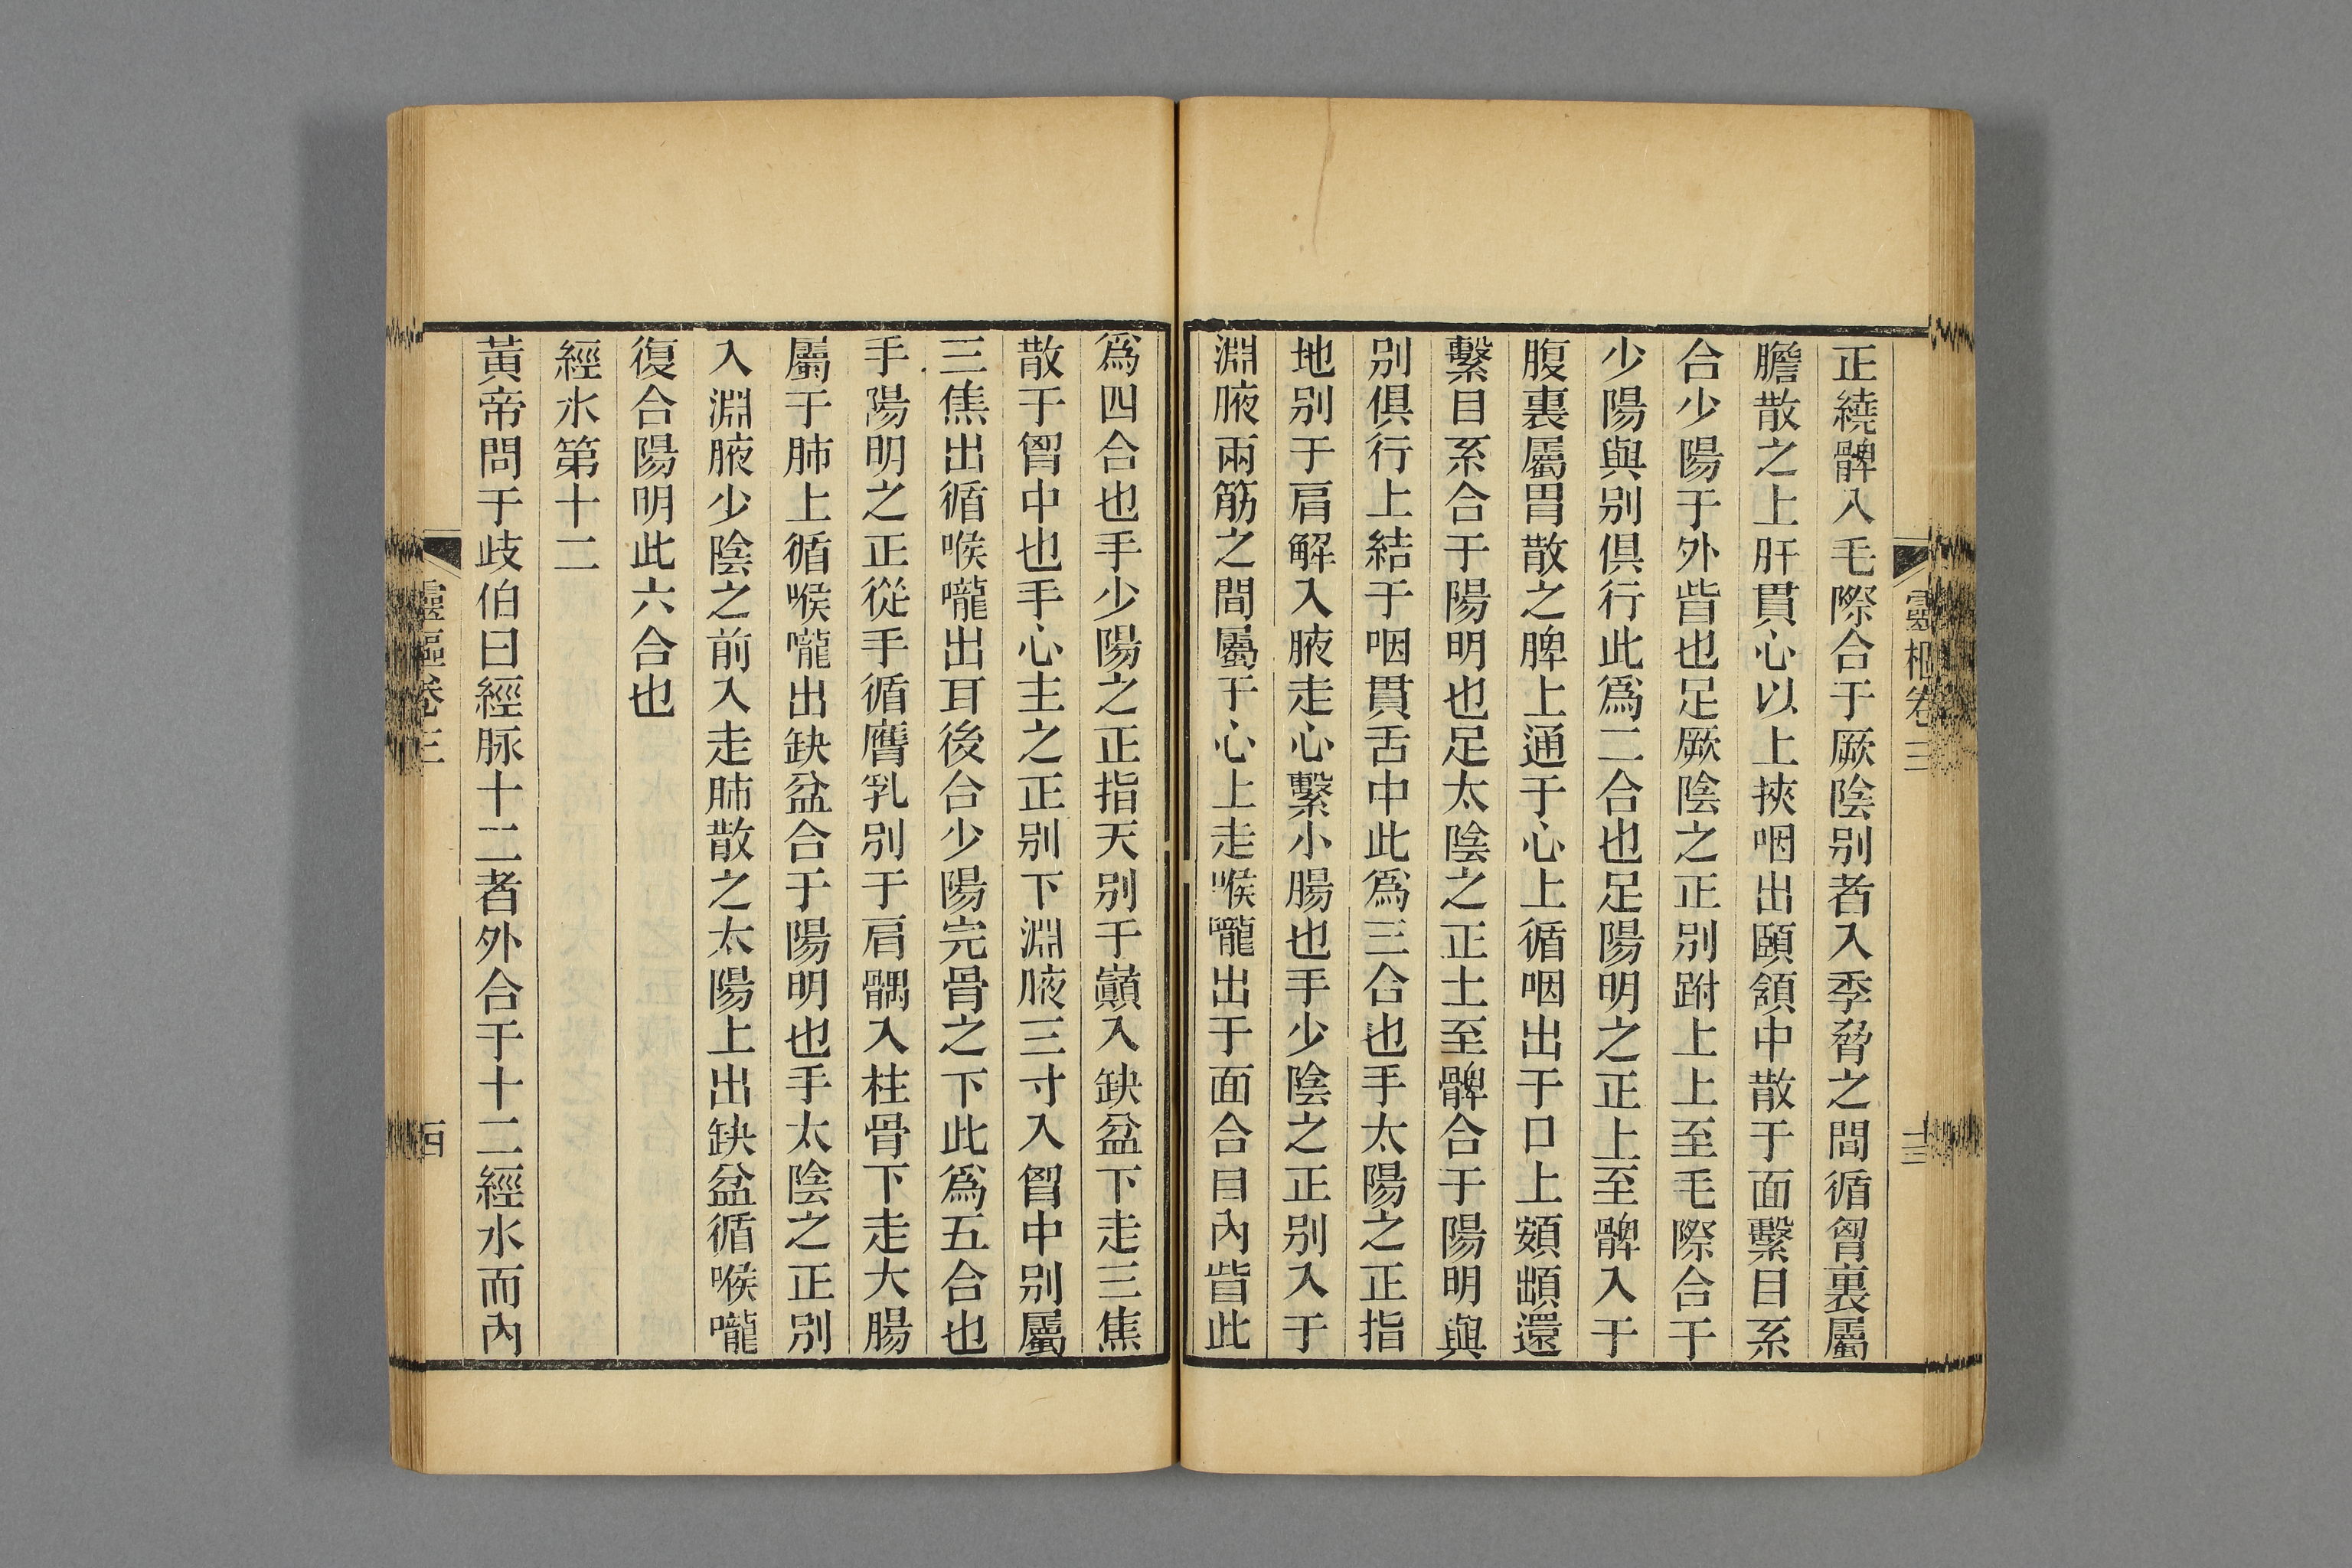 靈樞卷三
十三
正繞髀入毛際合于厥陰别者入季脅之間循胷裏屬
膽散之上肝貫心以上挾咽出頤頷中散于面繫目系
合少陽于外眥也足厥陰之正别跗上上至毛際合于
少陽與别俱行此爲二合也足陽明之正上至髀入于
腹裏屬胃散之脾上通于心上循咽出于口上頞䪼還
繫目系合于陽明也足太陰之正土至髀合于陽明與
别俱行上結于咽貫舌中此爲三合也手太陽之正指
地别于肩解入腋走心繫小腸也手少陰之正别入于
淵腋兩筋之間屬于心上走喉嚨出于面合目內眥此
爲四合也手少陽之正指天别于巔入缺盆下走三焦
散于胷中也手心主之正别下淵腋三寸入胷中别屬
三焦出循喉嚨出耳後合少陽完骨之下此爲五合也
手陽明之正從手循膺乳别于肩髃入柱骨下走大腸
屬于肺上循喉嚨出缺盆合于陽明也手太陰之正别
入淵腋少陰之前入走肺散之太陽上出缺盆循喉嚨
復合陽明此六合也
經水第十二
黃帝問于歧伯曰經脈十二者外合于十二經水而內
靈樞卷三